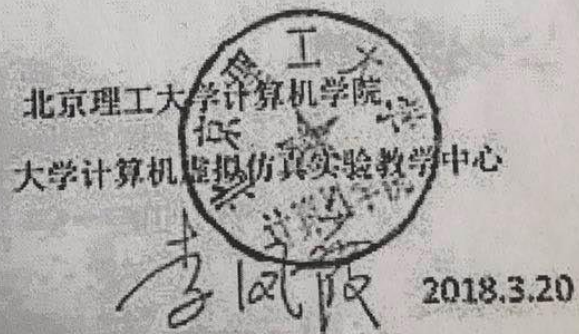 北京理工大学计算机学院
大学计算机虚拟仿真实验教学中心
北京理工大学
计算机学院
李凤霞 2018.3.20